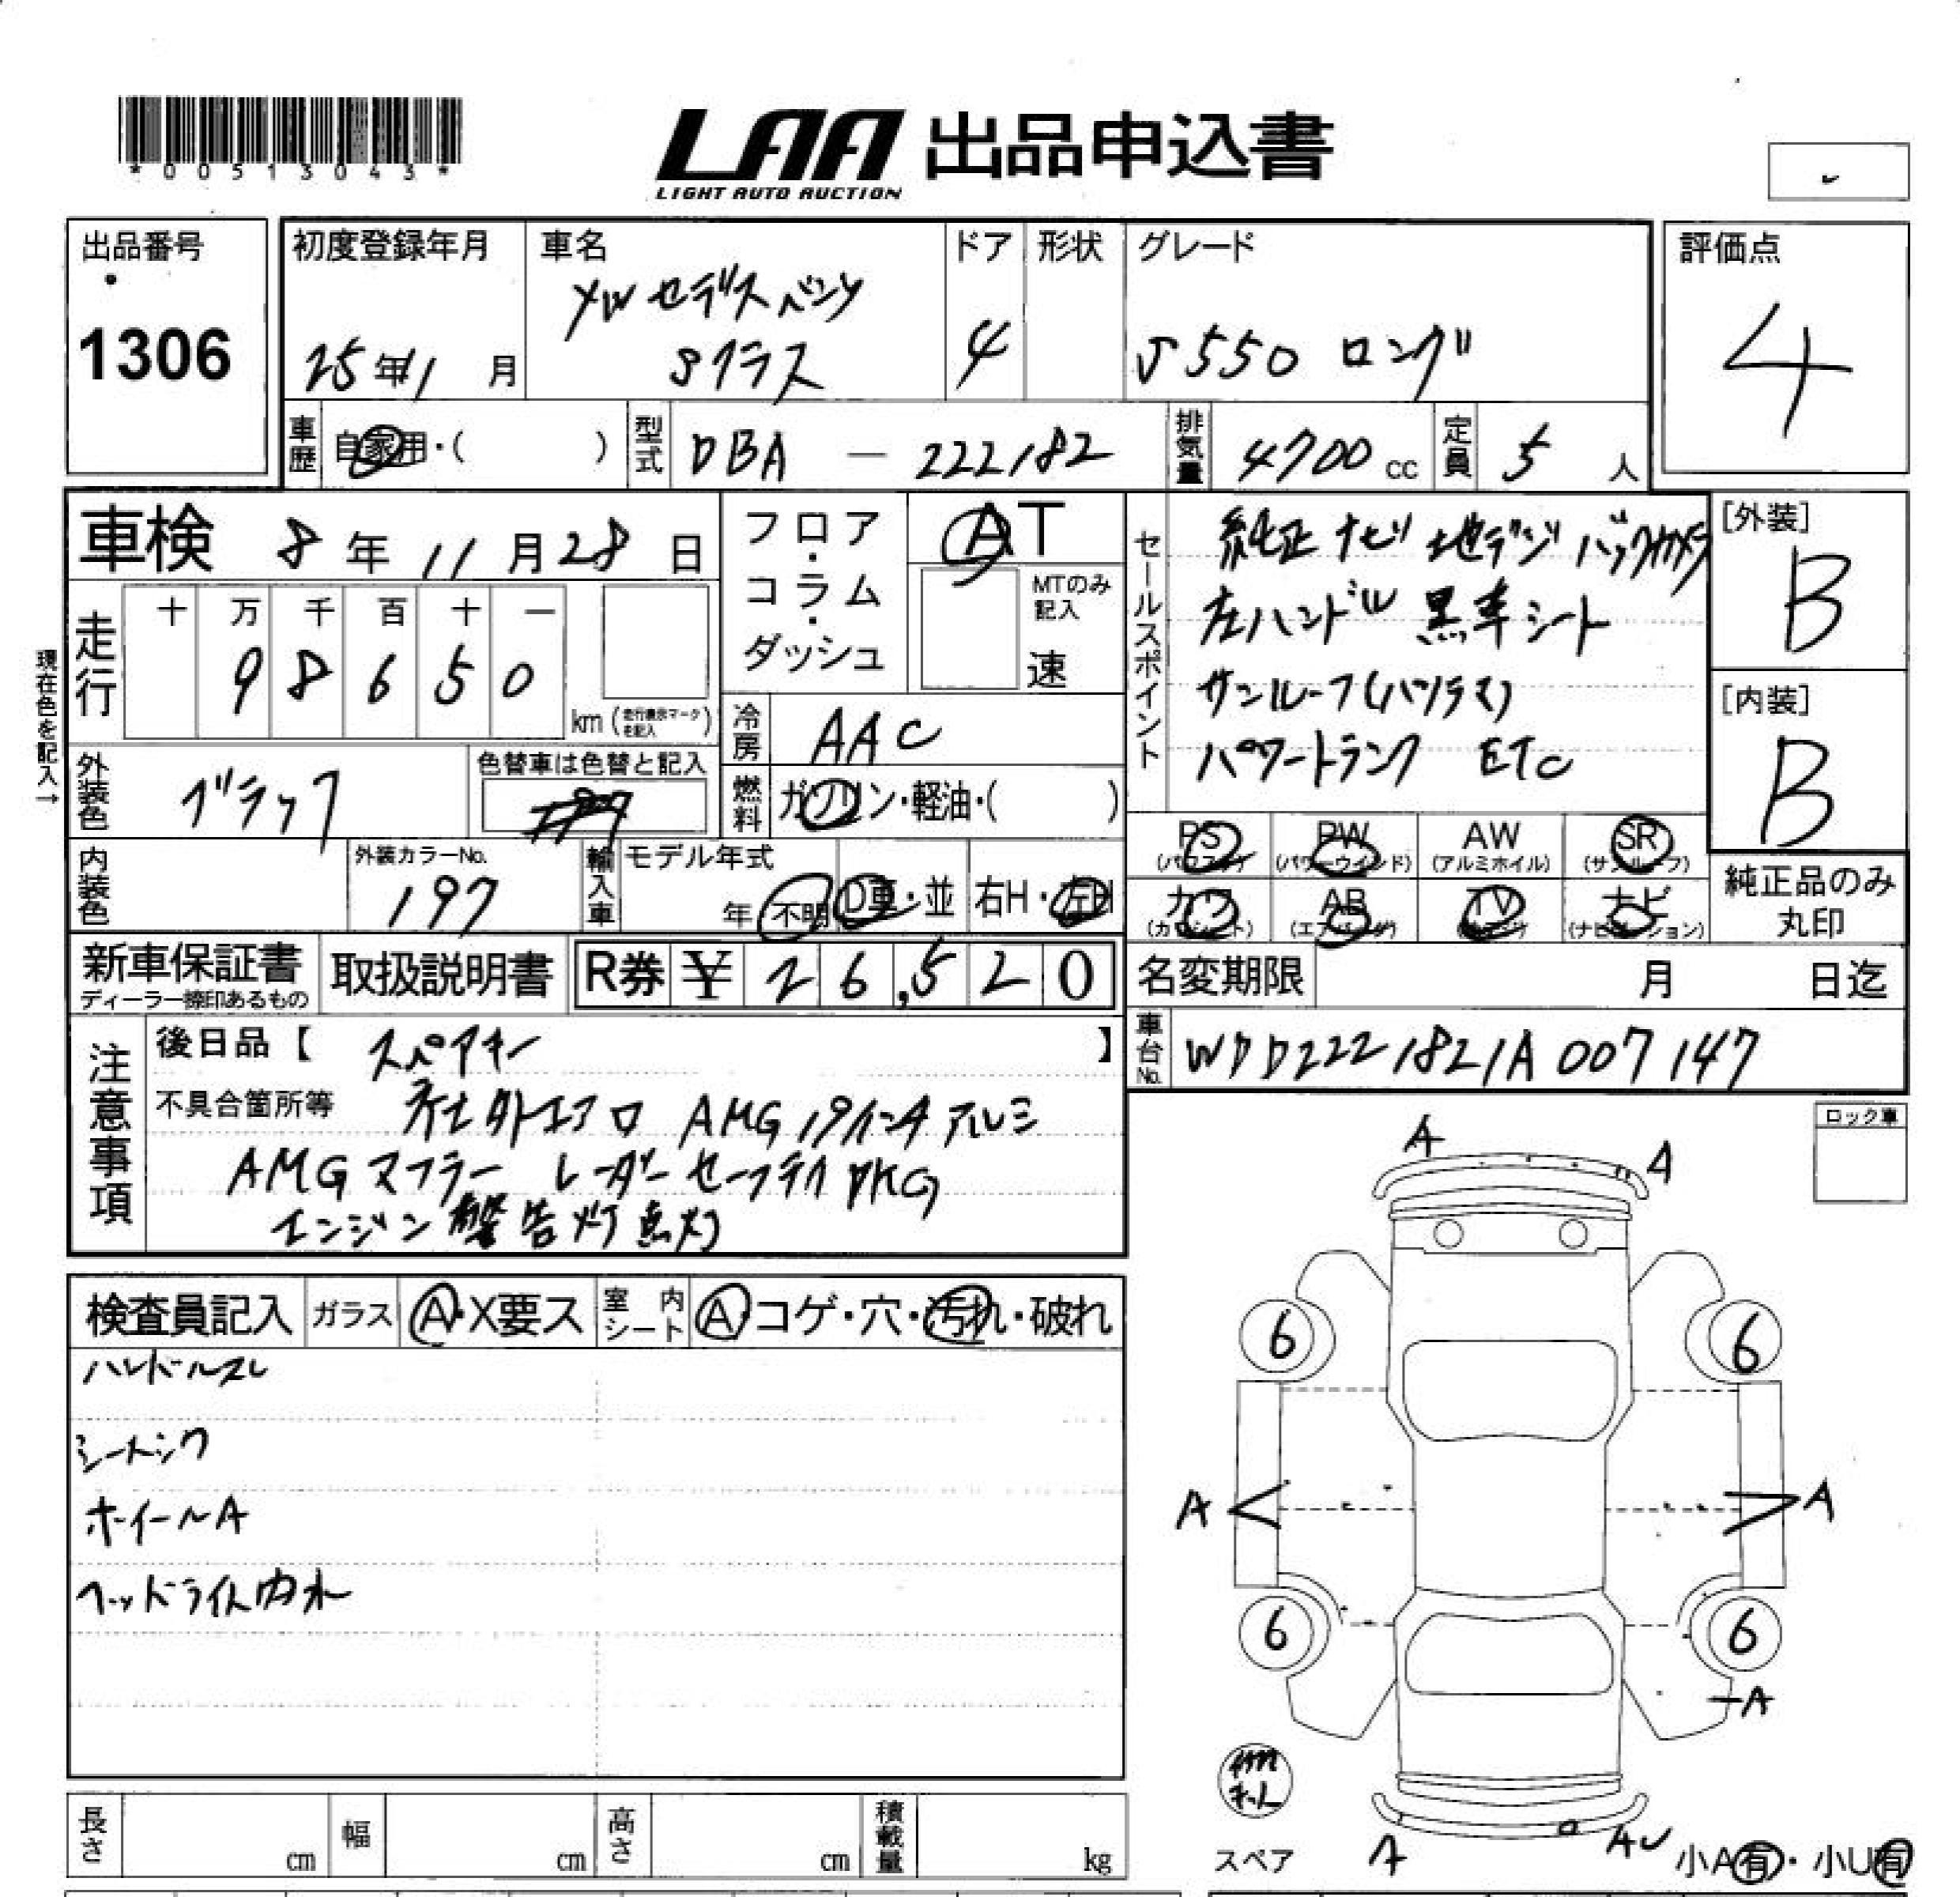 *00513043*
LAA 出品申込書
LIGHT AUTO AUCTION
出品番号
1306
初度登録年月
25年11月
車名
メルセデスベンツ
Sクラス
ドア
4
形状
グレード
S550 ロング
評価点
4
車歴
自家用・( )
型式
DBA — 222182
排気量
4700 cc
定員
5 人
車検 8年11月28日
走行
十 万 千 百 十 一
9 8 6 5 0
km (走行表示マークを記入)
現在色を記入→
フロア・コラム・ダッシュ
AT
MTのみ記入
速
冷房
AAC
燃料
ガソリン・軽油・( )
セールスポイント
純正ナビ 地デジ バックカメラ
左ハンドル 黒革シート
サンルーフ(パノラマ)
パワートランク ETC
[外装]
B
[内装]
B
外装色
ブラック
色替車は色替と記入
内装色
外装カラーNo.
197
輸入車
モデル年式
年 不明 D車・並 右H・左H
PS
(パワステ)
PW
(パワーウインド)
AW
(アルミホイル)
SR
(サンルーフ)
カワ
(カワシート)
AB
(エアバッグ)
TV
ナビ
(ナビゲーション)
純正品のみ
丸印
新車保証書
ディーラー捺印あるもの
取扱説明書
R券 ¥ 26,520
名変期限 月 日迄
車台No.
WDD2221821A007147
注意事項
後日品【 スペアキー 】
不具合箇所等 社外エアロ AMG 19インチ アルミ
AMG マフラー レーダーセーフティPKG
エンジン警告灯点灯
ロック車
検査員記入
ガラス A・X要ス
室内シート A コゲ・穴・汚れ・破れ
ハンドルスレ
シートシワ
ホイールA
ヘッドライト内水
A
A
6
6
A
A
6
6
A
スペア
A
AU
小A有・小U有
長さ cm
幅 cm
高さ cm
積載量 kg